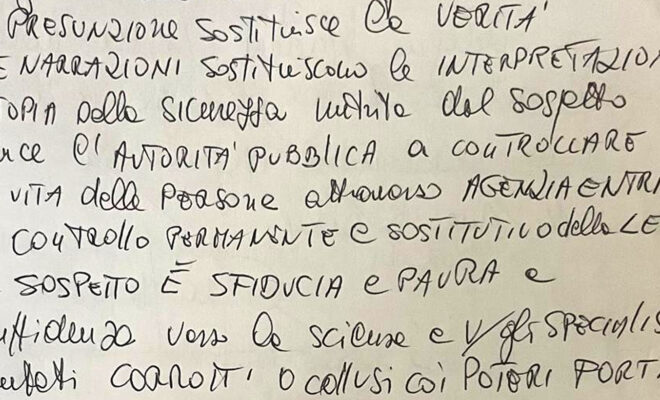 PRESUNZIONE SOSTITUISCE la VERITÀ
E NARRAZIONI SOSTITUISCONO le INTERPRETAZION
TOPIA della SICUREZZA nutrita dal SOSPETTO
nce l'AUTORITÀ PUBBLICA a CONTROLLARE
VITA delle PERSONE attraverso AGENZIA ENTRA
CONTROLLO PERMANENTE e SOSTITUTIVO della LE
SOSPETTO È SFIDUCIA e PAURA e
ffidenza verso le scienze e v/gli SPECIALIS
CORROTTI O collusi coi POTERI FORT